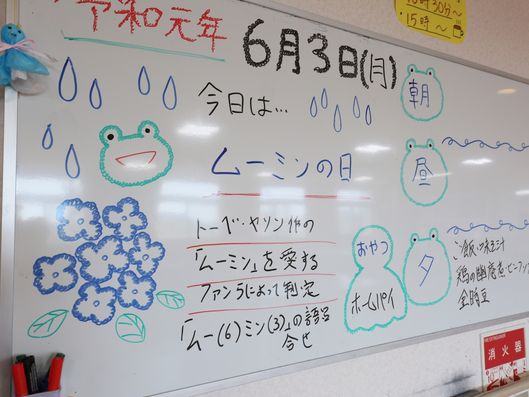 令和元年
6月3日(月)
今日は…
ムーミンの日
トーベ・ヤンソン作の
「ムーミン」を愛する
ファンらによって制定
「ムー(6)ミン(3)」の語呂
合せ
朝
昼
夕
おやつ
ホームパイ
ご飯
金時豆
15時〜
消火器